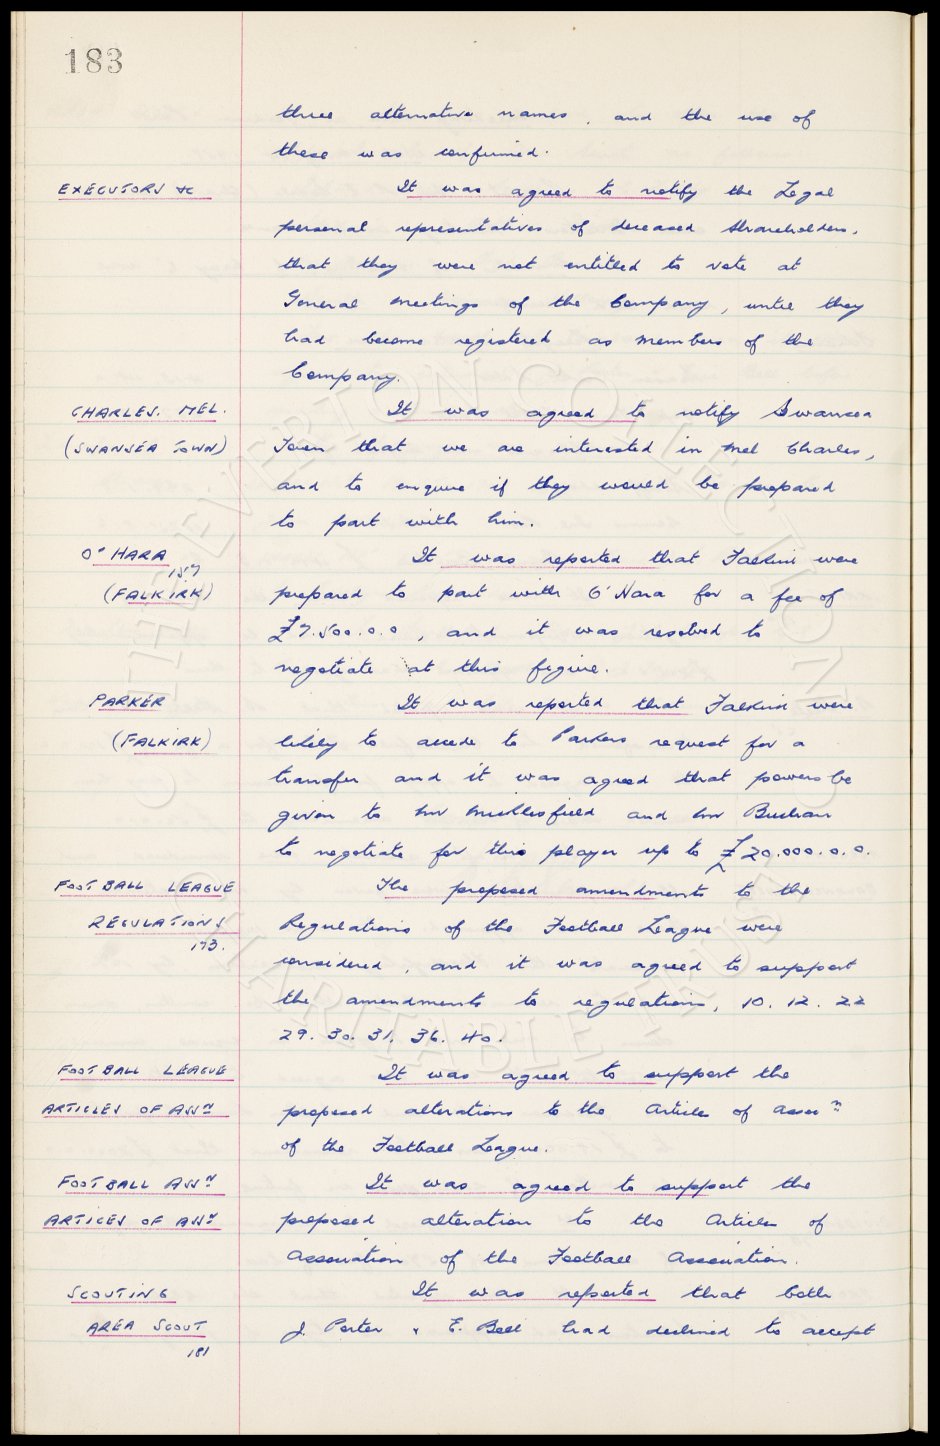 183
three alternative names, and the use of
these was confirmed.
EXECUTORS &c
It was agreed to notify the Legal
personal representatives of deceased Shareholders,
that they were not entitled to vote at
General Meetings of the Company, until they
had become registered as Members of the
Company.
CHARLES. MEL.
(SWANSEA TOWN)
It was agreed to notify Swansea
Town that we are interested in Mel Charles,
and to enquire if they would be prepared
to part with him.
O'HARA
157
(FALKIRK)
It was reported that Falkirk were
prepared to part with O'Hara for a fee of
£7.500.0.0, and it was resolved to
negotiate at this figure.
PARKER
(FALKIRK)
It was reported that Falkirk were
likely to accede to Parkers request for a
transfer and it was agreed that powers be
given to Mr Micklesfield and Mr Buchan
to negotiate for this player up to £20.000.0.0.
FOOTBALL LEAGUE
REGULATIONS
173.
The proposed amendments to the
Regulations of the Football League were
considered, and it was agreed to support
the amendments to regulations, 10. 12. 22
29. 30. 31. 36. 40.
FOOTBALL LEAGUE
ARTICLES OF ASSN
It was agreed to support the
proposed alterations to the Articles of Assocn
of the Football League.
FOOTBALL ASSN
ARTICES OF ASSN
It was agreed to support the
proposed alteration to the Articles of
Association of the Football Association.
SCOUTING
AREA SCOUT
181
It was reported that both
J. Porter & E. Bell had declined to accept
© THE EVERTON COLLECTION
CHARITABLE TRUST